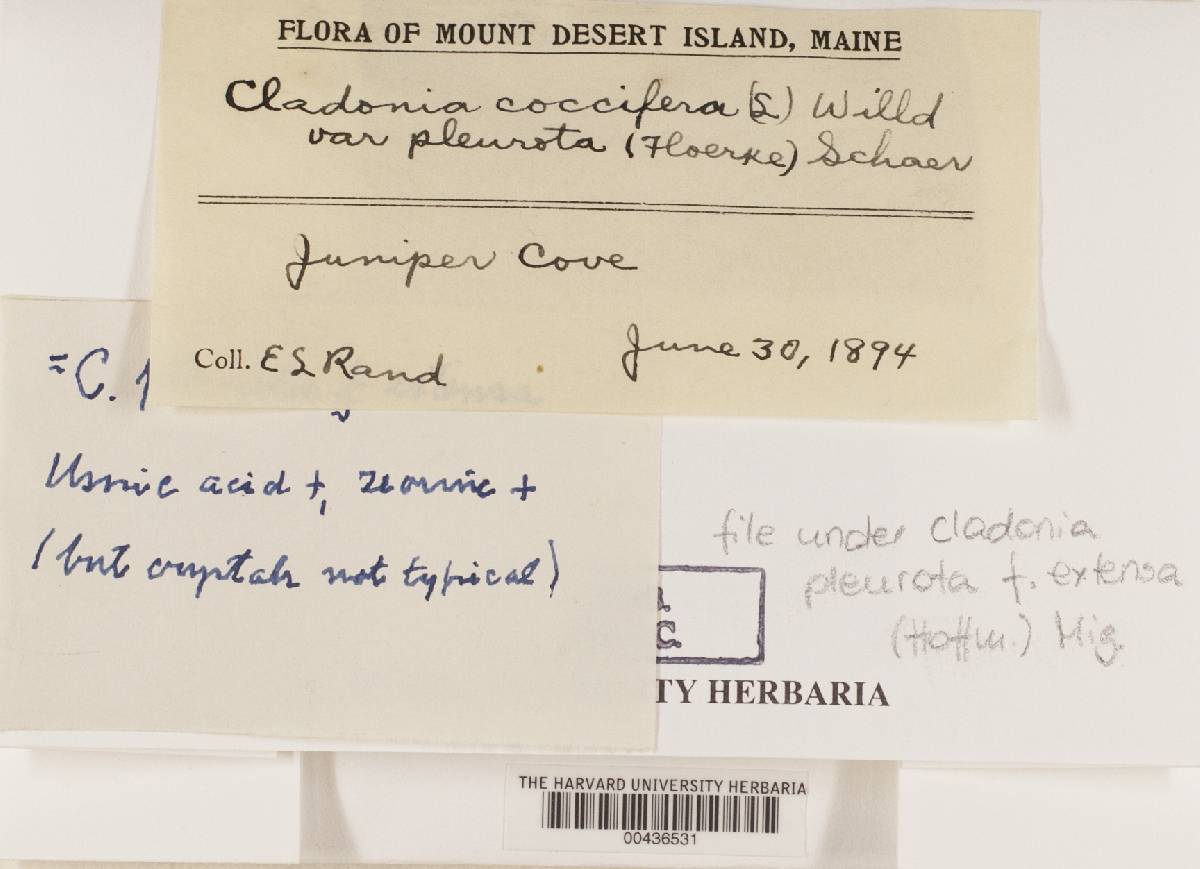 FLORA OF MOUNT DESERT ISLAND, MAINE
Cladonia coccifera (L) Willd
var pleurota (Floerke) Schaer
Juniper Cove
Coll. E L Rand
June 30, 1894
= C.
Usnic acid +, zeorine +
(but crystals not typical)
file under Cladonia
pleurota f. extensa
(Hoffm.) Mig.
C.
TY HERBARIA
THE HARVARD UNIVERSITY HERBARIA
00436531